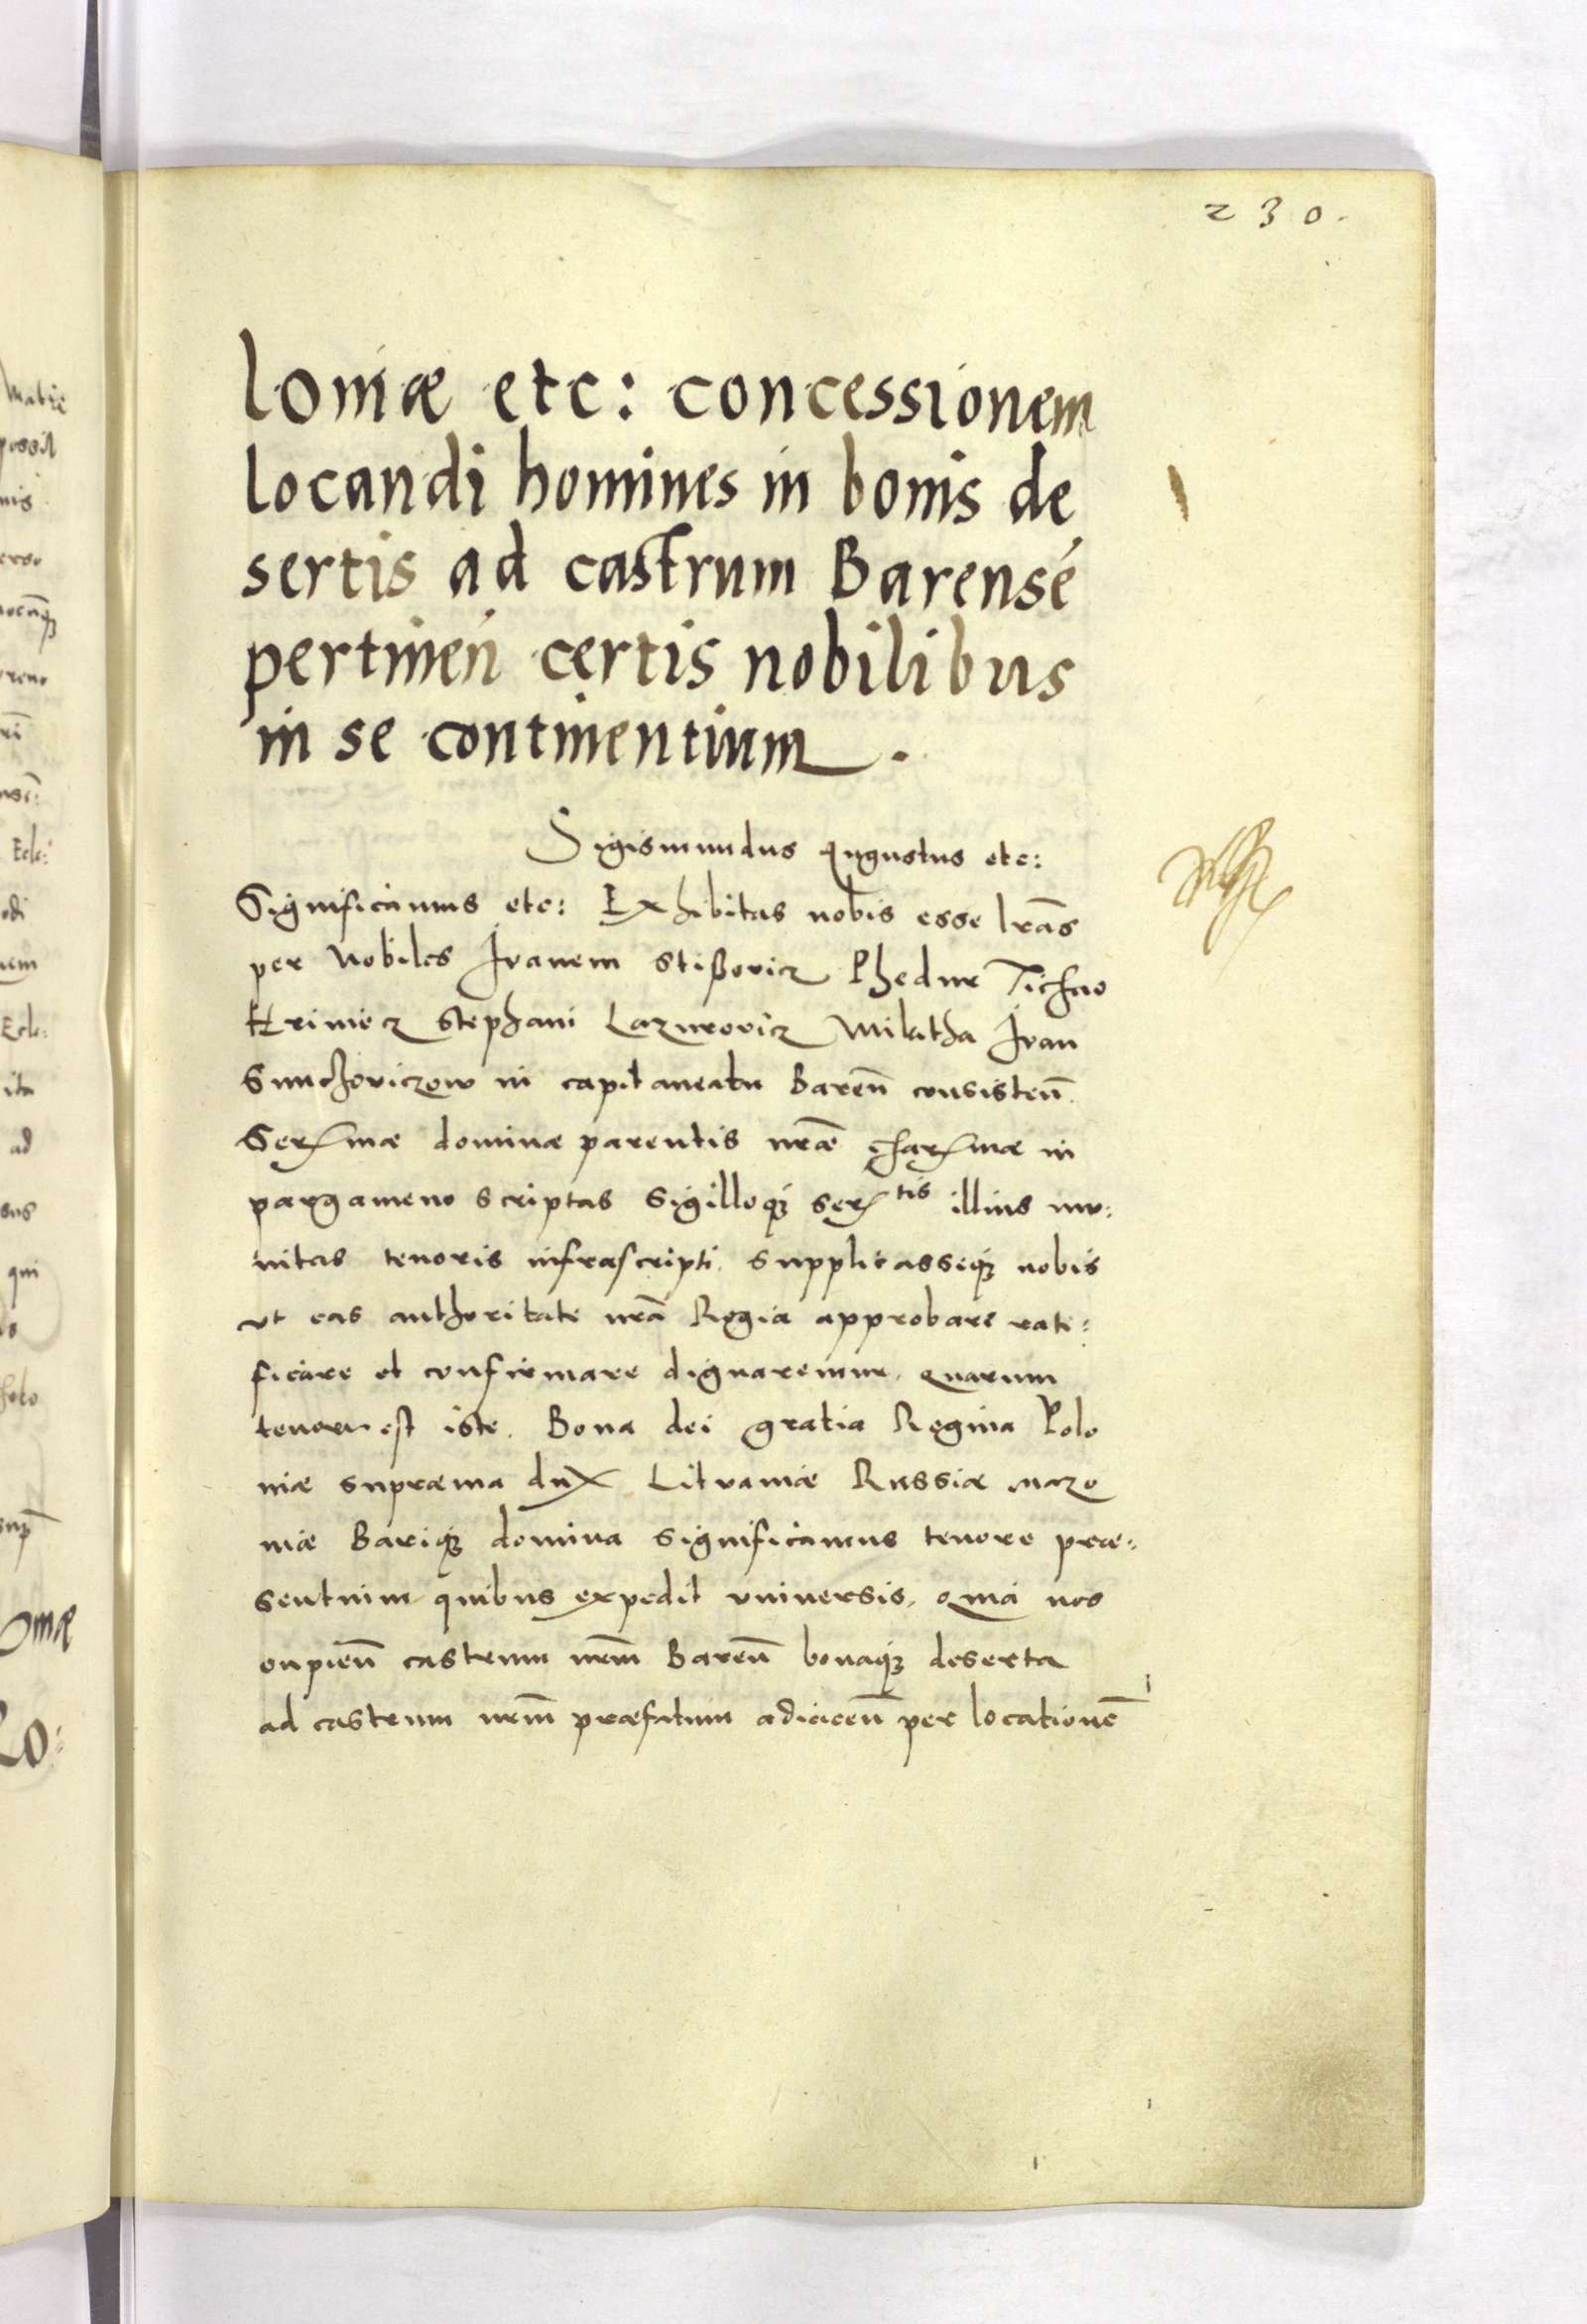 230.
loniæ etc: concessionem
locandi homines in bonis de
sertis ad castrum Barense
pertineñ certis nobilibus
in se continentium.
Sigismundus Augustus etc:
Significamus etc: Exhibitas nobis esse lrãs
per Nobiles Ivanem Stißovicz Phedur Tichno
Krimiecz Stephani Lazurovicz Mikitha Ivan
Sunchoviczow in capitaneatu Bareñ consisteñ.
Serꝭmæ dominæ parentis nræ charꝭmæ in
pargameno scriptas sigilloqꝫ Serꝭtis illius mu:
nitas tenoris infrascripti. Supplicasseqꝫ nobis
vt eas authoritate nrã Regia approbare rati:
ficare et confirmare dignaremur. Quarum
tenor est iste. Bona dei gratia Regina Polo
niæ supræma dux Lituaniæ Russiæ Mazo
niæ Bariqꝫ domina significamus tenore præ:
sentium quibus expedit vniversis. Quia nos
cupieñ castrum nrm̃ Bareñ bonaqꝫ deserta
ad castrum nrm̃ præfatum adiaceñ per locationẽ